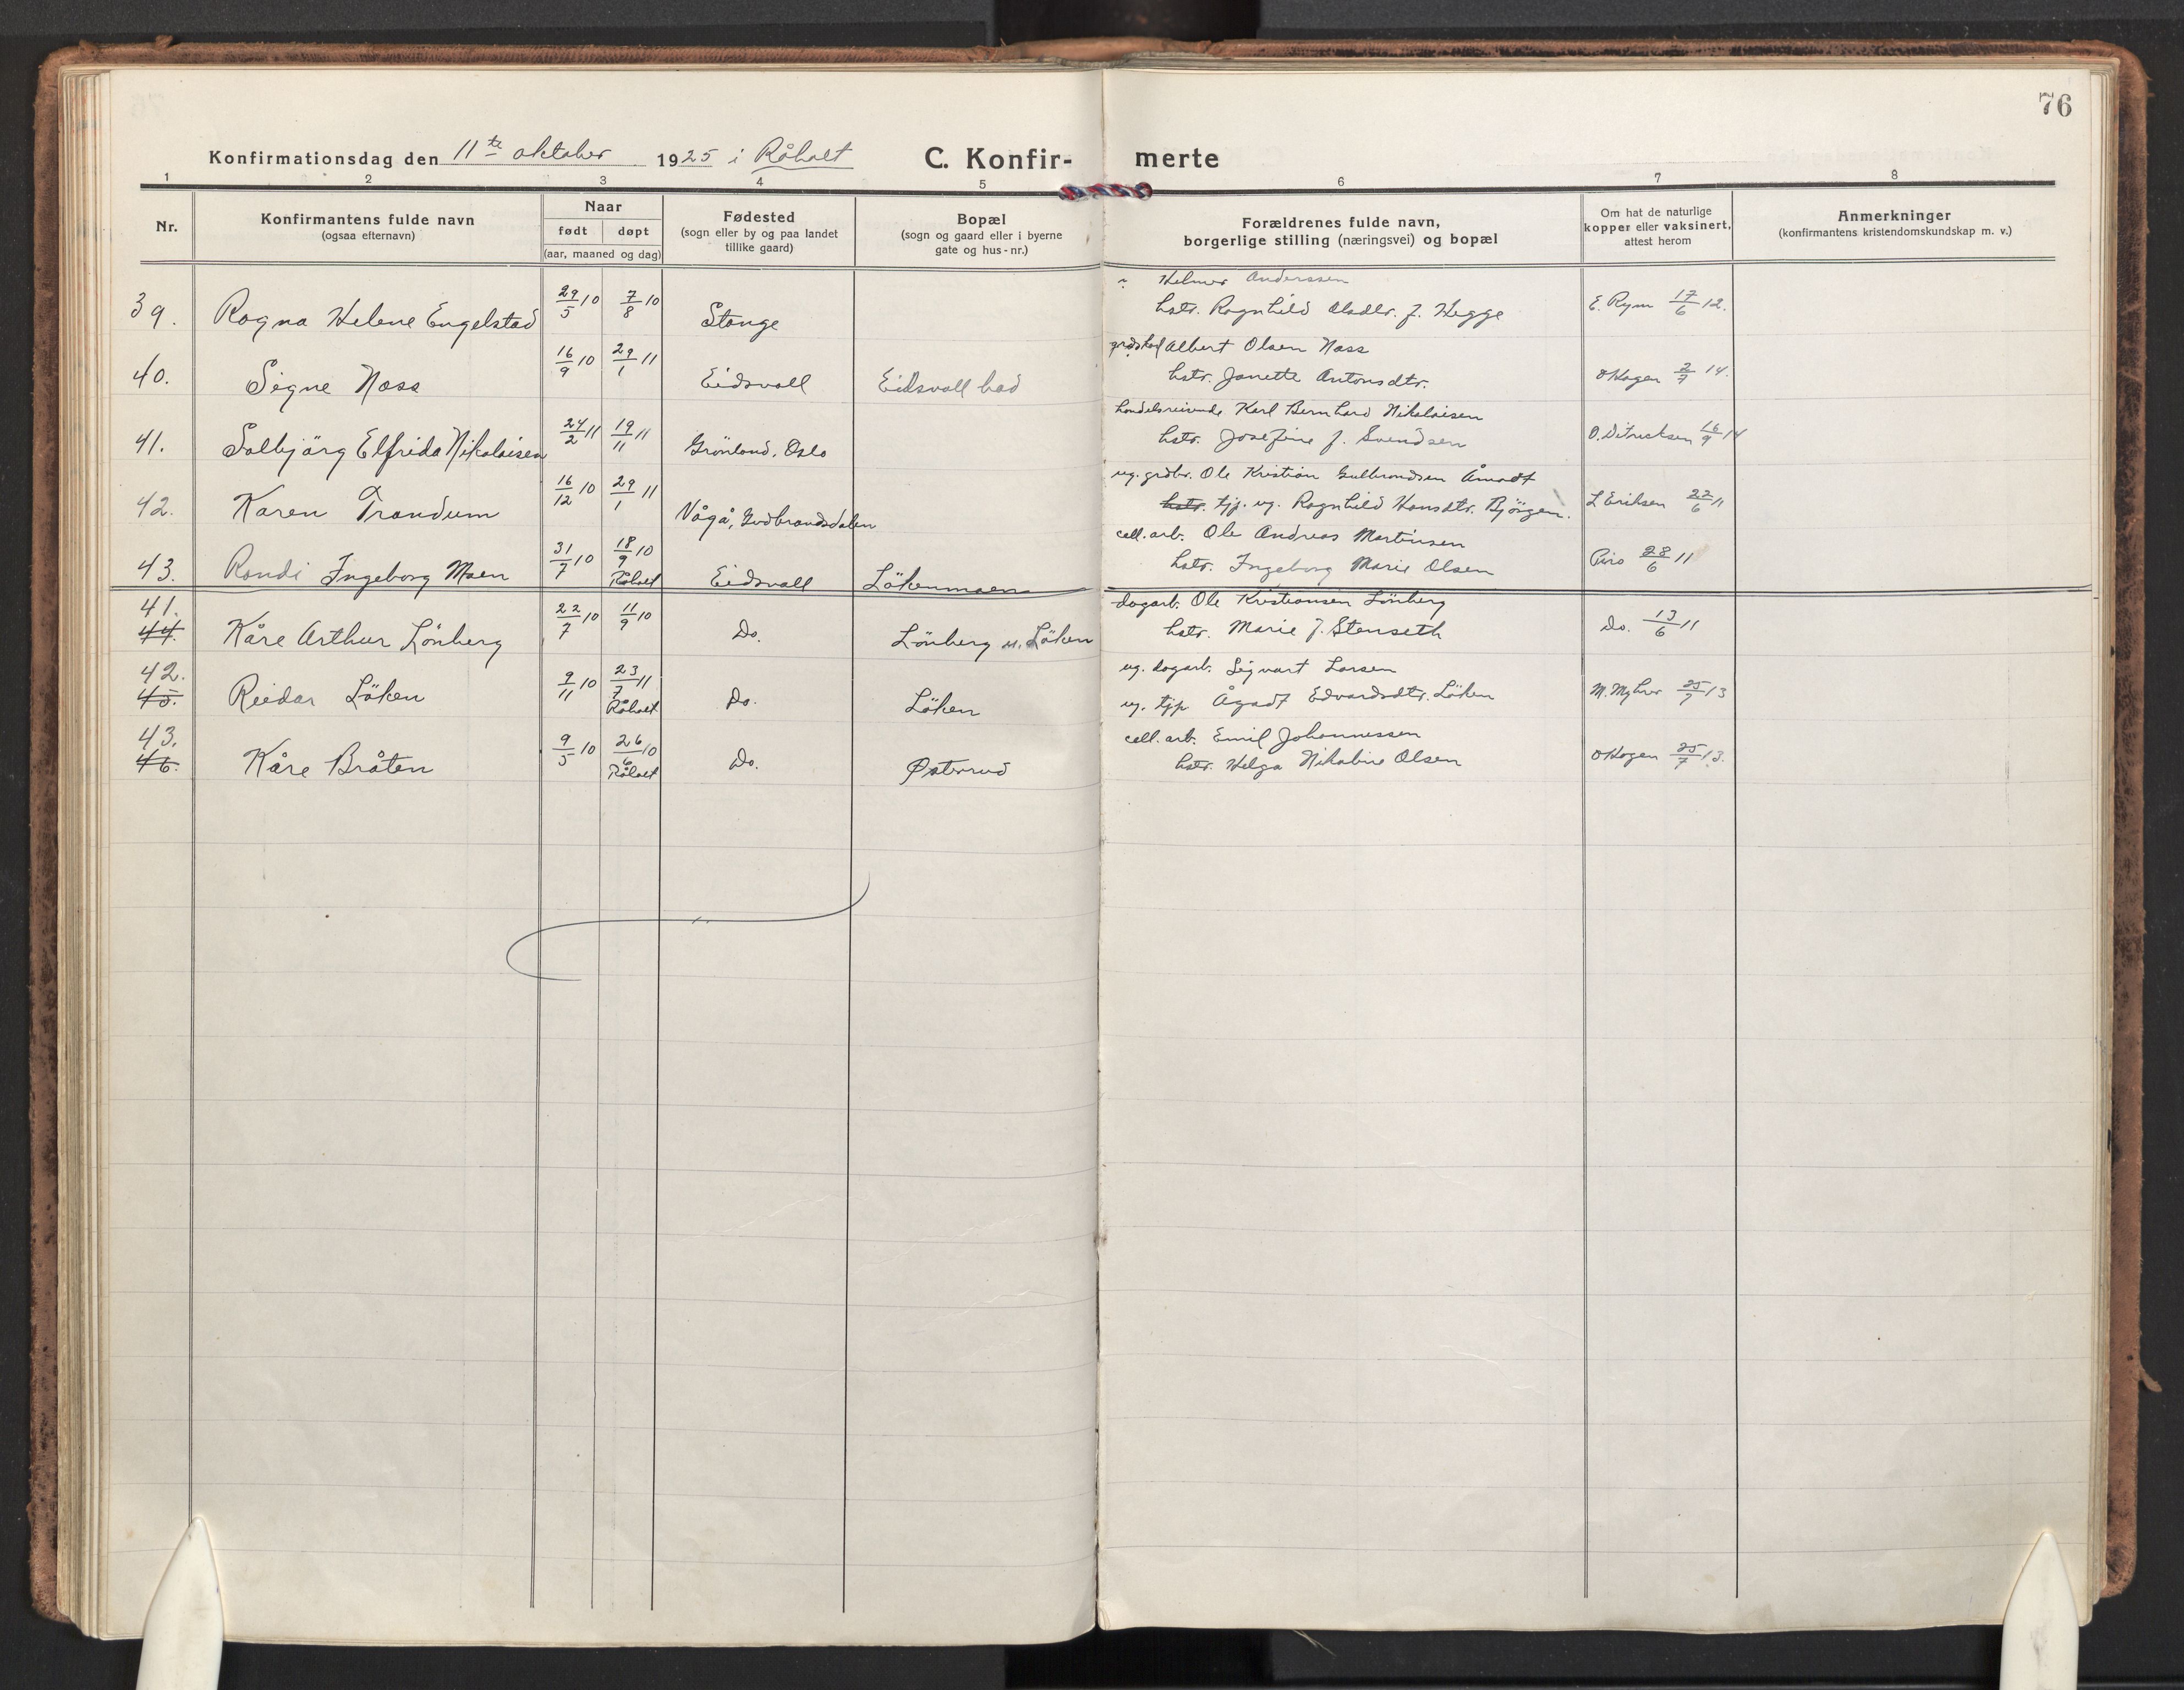 76
Konfirmationsdag den 11te oktober 1925 i Råholt C. Konfir- merte
1 2 3 4 5 6 7 8
Nr.
Konfirmantens fulde navn
(ogsaa efternavn)
Naar
født døpt
(aar, maaned og dag)
Fødested
(sogn eller by og paa landet
tillike gaard)
Bopæl
(sogn og gaard eller i byerne
gate og hus-nr.)
Forældrenes fulde navn,
borgerlige stilling (næringsvei) og bopæl
Om hat de naturlige
kopper eller vaksinert,
attest herom
Anmerkninger
(konfirmantens kristendomskundskap m. v.)
Helmer Anderssen
39. Ragna Helene Engelstad 29/5 10 7/8 10 Stange hstr. Ragnhild f. Hegge E. Rym 17/6 12.
Albert Olsen Næss
40. Signe Næss 16/9 10 29/1 11 Eidsvoll Eidsvoll bad hstr. Janette Antonsdtr. O Hagen 2/7 14.
handelsreisende Karl Bernhard Nikolaisen
41. Solbjörg Elfrida Nikolaisen 24/2 11 19/11 11 Grönland, Oslo hstr. Josefine f. Svendsen O. Ditrichsen 16/9 14
ug. grdbr. Ole Kristian Gulbrandsen Åmodt
42. Karen Trandum 16/12 10 29/1 11 Vågå, Gudbrandsdalen hstr. tjp. ug. Ragnhild Hansdtr. Björgen. L Eriksen 22/6 11
cell. arb. Ole Andreas Martinsen
43. Randi Ingeborg Moen 31/7 10 18/9 10 Råholt Eidsvoll Lökenmoen hstr. Ingeborg Marie Olsen Piro 28/6 11
41. dagarb. Ole Kristiansen Lönberg
44. Kåre Arthur Lönberg 22/7 10 11/9 10 Do. Lönberg u. Löken hstr. Marie f. Stenseth Do. 13/6 11
42. ug. dagarb. Sigvart Larsen
45. Reidar Löken 9/11 10 23/7 11 Råholt Do. Löken ug. tjp Ågodt Edvardsdtr. Löken M. Myhrer 25/7 13
43. cell. arb. Emil Johannessen
46. Kåre Bråten 9/5 10 26/6 10 Råholt Do. Østerud hstr. Helga Nikoline Olsen O Hagen 25/7 13.